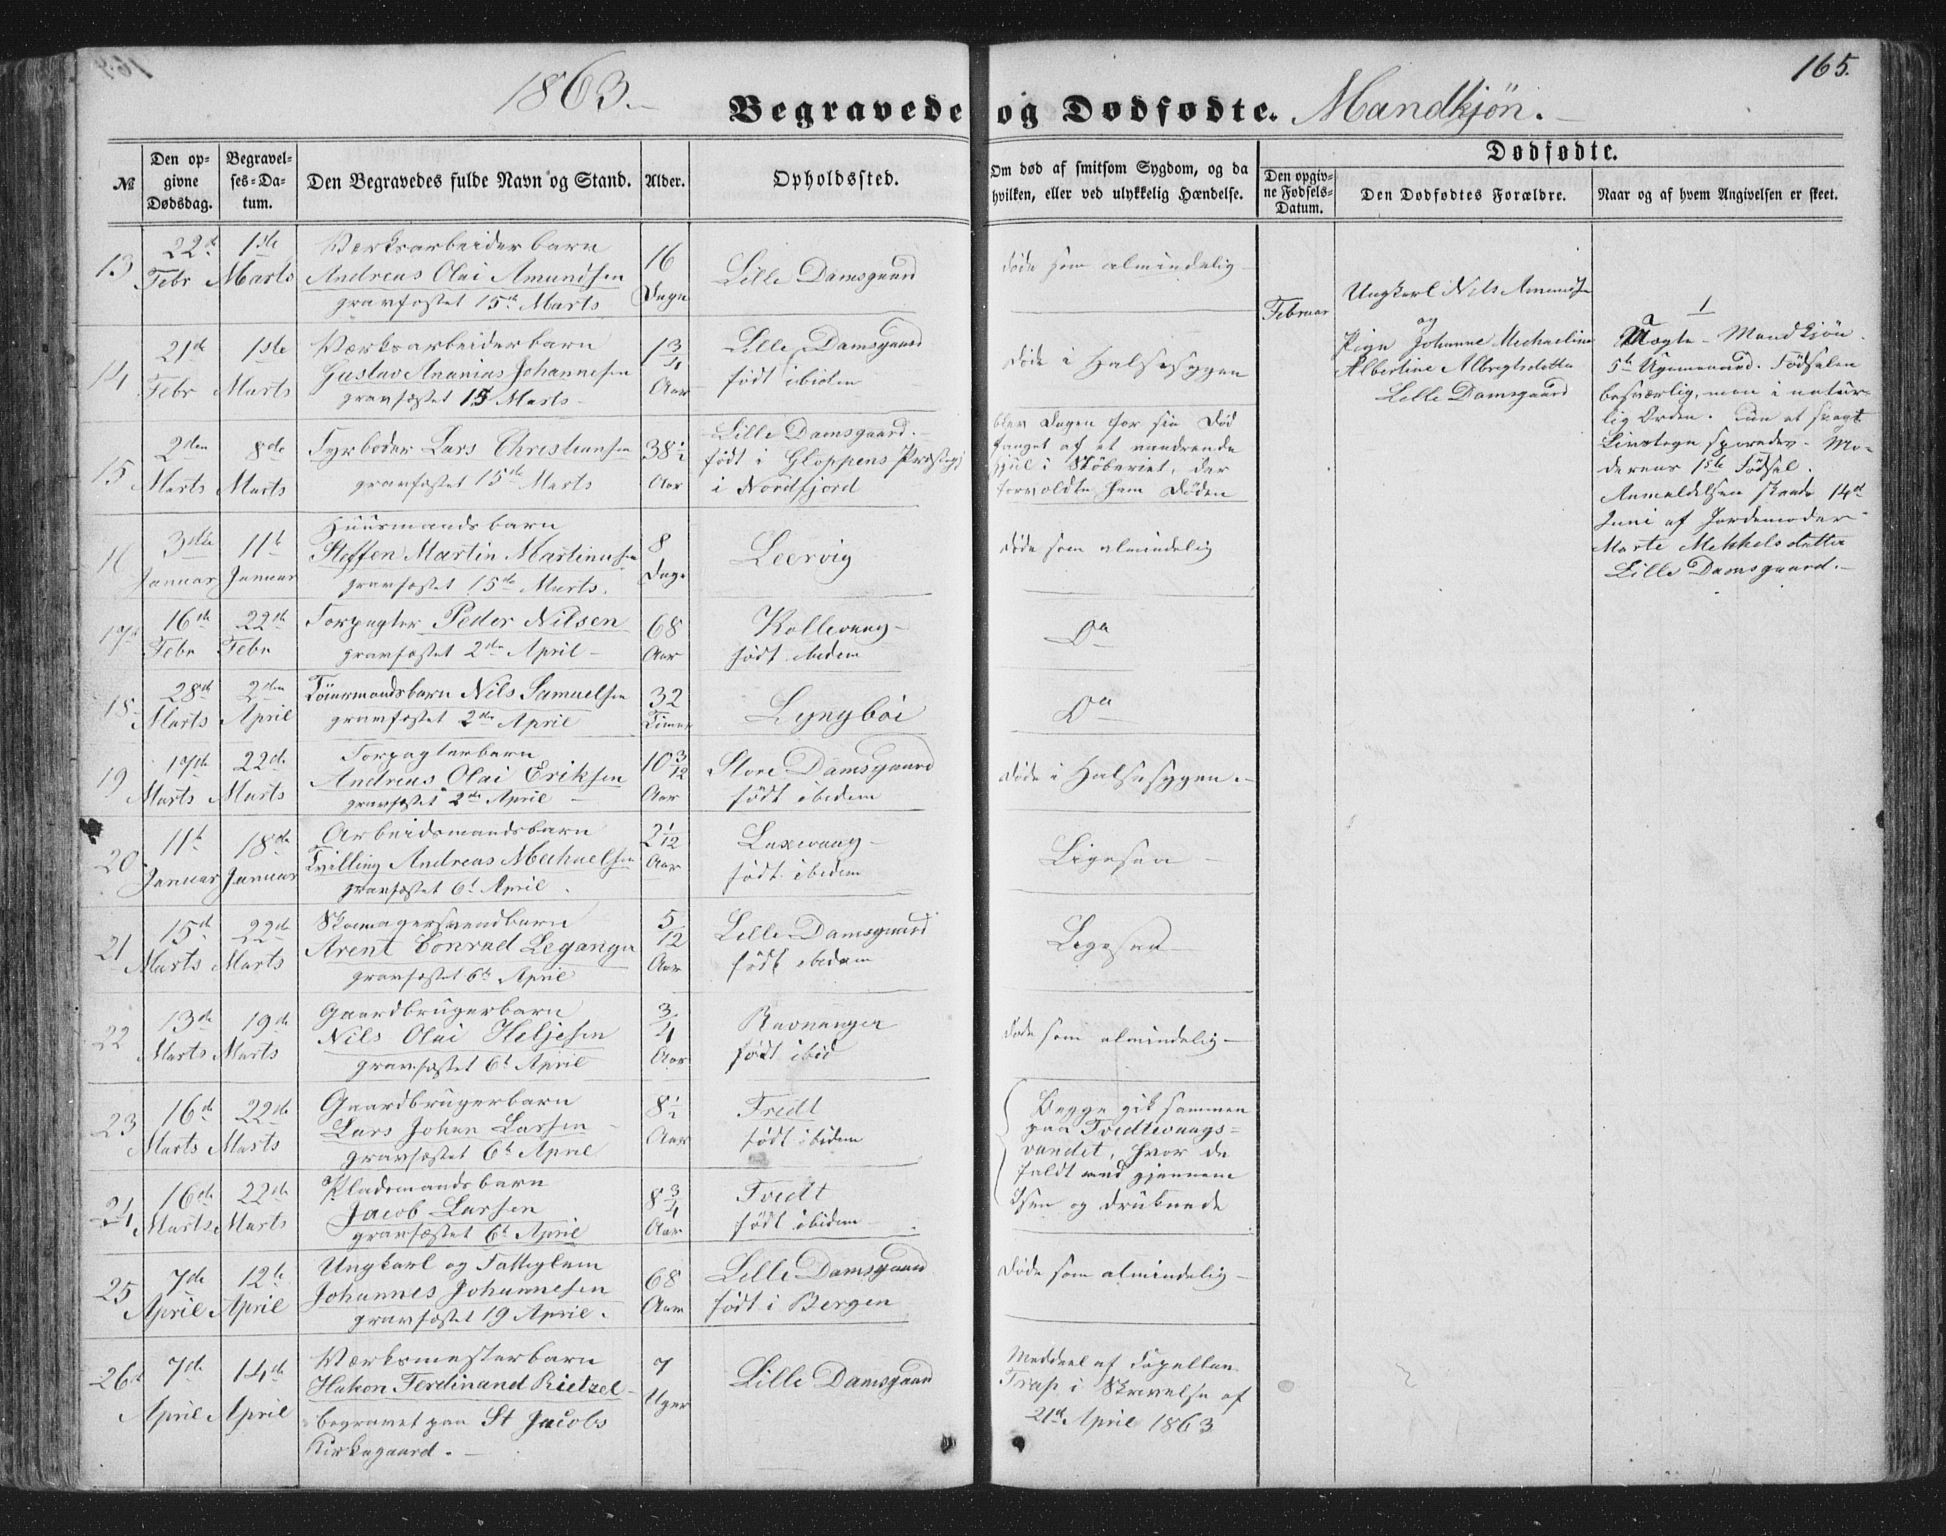 1863.
165.
Begravede og Dødfødte. Mandkjøn.
Dødfødte.
№
Den opgivne Dødsdag.
Begravelses-Datum.
Den Begravedes fulde Navn og Stand.
Alder.
Opholdssted.
Om død af smitsom Sygdom, og da hvilken, eller ved ulykkelig Hændelse.
Den opgivne Fødsels-Datum.
Den Dødfødtes Forældre.
Naar og af hvem Angivelsen er skeet.
13
22d Febr
1ste Marts
Værksarbeiderbarn
Andreas Olai Amundsen
gravfæstet 15de Marts
16 Dage
Lille Damsgaard
døde som almindelig
14
21de Febr
1ste Marts
Værksarbeiderbarn
Gustav Ananias Johannesen
gravfæstet 15 Marts
1 3/4 Aar
Lille Damsgaard
født ibidem
døde i Halsesygen
15
2den Marts
8de Marts
Fyrbøder Lars Christiansen
gravfæstet 15de Marts
38 1/2 Aar
Lille Damsgaard.
født i Gloppens Præstegj
i Nordfjord
blev Dagen før sin Død
fanget af et roterende
hjul i Støberiet, der
forvoldte ham Døden
16
3die Januar
11te Januar
Huusmandsbarn
Steffen Martin Martinusen
gravfæstet 15de Marts.
8 Dage
Leervig
døde som almindelig
17
16de Febr
22de Febr
Forpagter Peder Nilsen
gravfæstet 2den April
68 Aar
Kollevaag
født ibidem
Do
18
28de Marts
2den April
Nils Samuelsen
gravfæstet 2den April
32 Timer
Lyngbøi
Do
19
17de Marts
22de Marts
Forpagterbarn
Andreas Olai Eriksen
gravfæstet 2de April
10 3/12 Aar
Store Damsgaard
født ibidem
døde i Halsesygen.
20
11te Januar
18de Januar
Arbeidsmandsbarn
Tvilling Andreas Michaelsen
gravfæstet 6te April
2 1/12 Aar
Laxevaag
født ibidem
Ligesaa
21
15de Marts
22de Marts
Skomagersvendbarn
Arent Conrad Leganger
gravfæstet 6te April
5/12 Aar
Lille Damsgaard
født ibidem
Ligesaa
22
13de Marts
19de Marts
Gaardbrugerbarn
Nils Olai Heljesen
gravfæstet 6te April
3/4 Aar
Ravnanger
født ibid
døde som almindelig
23
16de Marts
22de Marts
Gaardbrugerbarn
Lars Johan Larsen
gravfæstet 6te April
8 1/2 Aar
Tvedt
født ibidem
Begge gik sammen
paa Tvedtevaags-
vandet, hvor de
faldt ned gjennem
Isen og druknede
24
16de Marts
22de Marts
Pladsmandsbarn
Jacob Larsen
gravfæstet 6te April
8 3/4 Aar
Tvedt
født ibidem
25
7de April
12te April
Ungkarl og Fattiglem
Johannes Johannesen
gravfæstet 19 April.
68 Aar
Lille Damsgaard
født i Bergen
døde som almindelig
26
7de April
14de April
Værksmesterbarn
Hakon Ferdinand Rietzel
begravet paa St Jacobs
Kirkegaard.
7 Uger
Lille Damsgaard
Meddeel af Capellan
Trap i Skrivelse af
21de April 1863
Februar
Ungkarl Nils
og
Pige Johanne Michaeline
Albertine Albregtsdatter
Lille Damsgaard
1
Uægte Mandkjøn.
5te Ugemaaned. Fødselen
besværlig, men i natur-
lig Orden. Kun et svagt
Livstegn sporedes. Mo-
derens 1ste Fødsel.
Anmeldelsen skeede 14de
Juni af Jordemoder
Marte Mikkelsdatter
Lille Damsgaard.